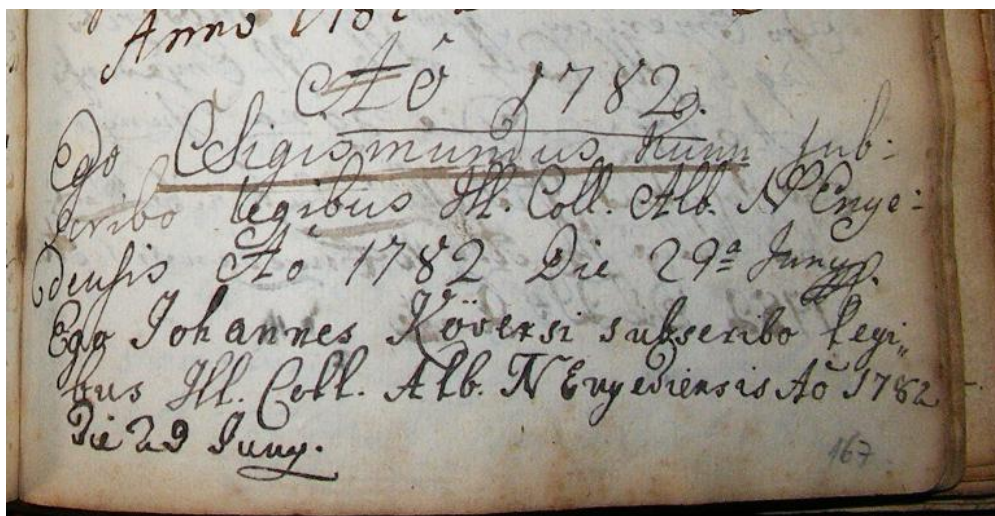 Anno 178
Aô 1782.
Ego Sigismundus Kunn sub:
scribo legibus Ill. Coll. Alb. N Enye:
densis Aô 1782 Die 29ª Junys.
Ego Johannes Köversi subscribo legi„
bus Ill. Coll. Alb. N Enyediensis Aô 1782
Die 29 Juny.
167